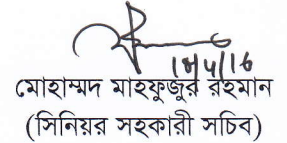 ১৮/৭/১৬
মোহাম্মদ মাহফুজুর রহমান
(সিনিয়র সহকারী সচিব)